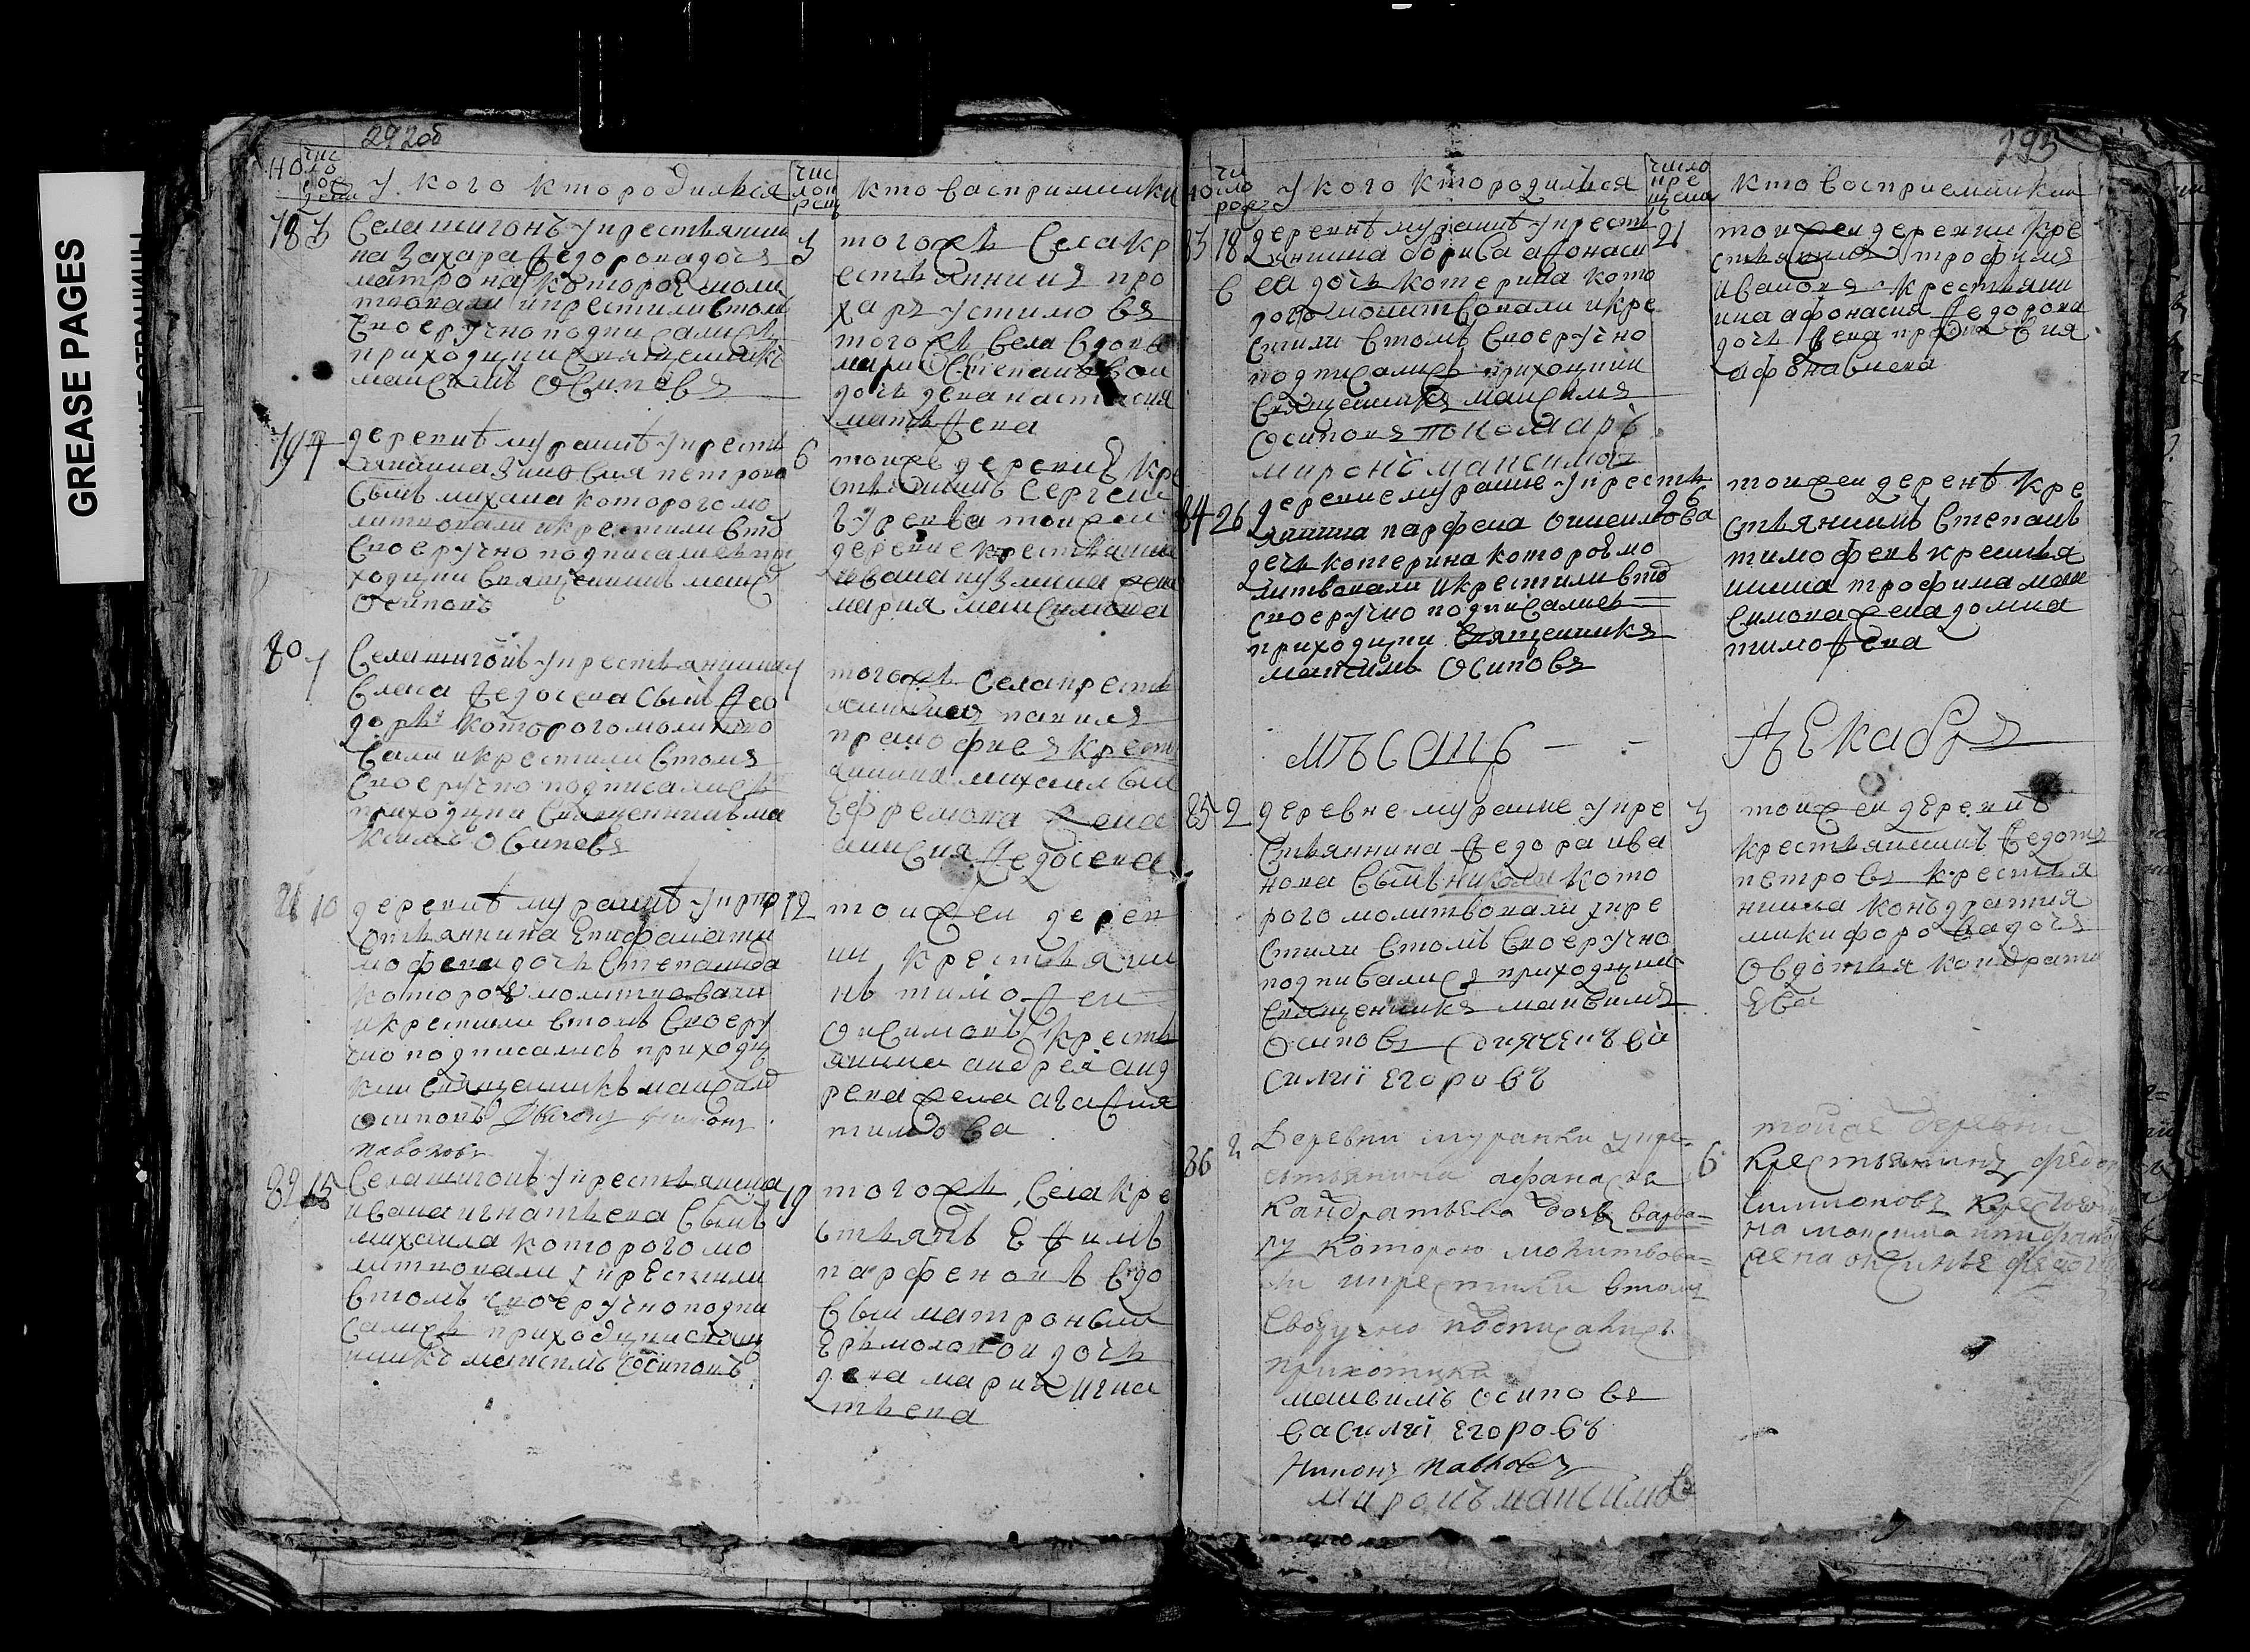 GREASE PAGES
292об
но
чис
ло
рож
дени
у кого кто родилься
чис
ло
кто васприимники
78 3
Села шигонъ у крестьянин
на Захара Федорова дочь
матрона которою моли
твовали и крестили в том
своеручно подписались
приходцки священникъ
максимъ Осиповъ
3
того же села кр
естьянинъ про
харъ устимовъ
того же села вдовы
мари Степановои
дочь девка настасия
79
деревнѣ муранкѣ у кресть
янина Зиновия петрова
сынъ михаила которого мо
литвовали и крестили в то
своеручно подписались при
ходцки священникъ макс
Осиповъ
6
тои же деревнѣ кре
стьянинъ Сергеи
гурьева тои же
деревне крестьянина
ивана кузмина жена
мария максимова
80 7
Села шигонъ у крестьянина
власа Федосеева сынъ Фео
доръ которого молитво
вали и крестили в томъ
своеручно подписались
приходцки священникъ ма
ксимъ Осиповъ
7
того же села кресть
янинъ
прокофиевъ крест
янина михаила
Ефремова жена
анисия Федосеева
81 10
деревнѣ муранкѣ у кре
стьянина Епифана ти
мофеева дочь Степанида
которою молитвовали
и крестили в томъ своеру
чно подписались приходц
кии священникъ максим
осиповъ
павловъ
12
тои же дерев
ни крестьяни
нъ тимофеи
Онисимовъ крест
янина андрея анд
реева жена агафия
тимофеева
82 15
Села шигонъ у крестьянина
ивана игнатьева сынъ
михаила которого мо
литвовали и крестили
в томъ своеручно подпи
сались приходцки свящ
нникъ максимъ Осиповъ
19
того же села кре
стьянъ Ефимъ
парфеновъ вдо
выи матроныи
Ермолаевои дочь
девка мария игна
тьева
293
чи
сло
рож
у кого кто родилься
число
кре
щения
кто восприемники
83 18
деревнѣ муранкѣ у кресть
янина бориса афонаси
ева дочь катерина кото
рого молитвовали и кре
стили в томъ своеручно
подписались приходцкии
священникъ максимъ
Осиповъ пономарь
миронъ максимовъ
21
тои же деревни кре
стьянинъ трофимъ
ивановъ крестьяни
нна афонасия Федорова
дочь девка
афонасиева
84 26
деревне муранке у кресть
янина парфена Онисимова
дочь катерина которою мо
литвовали и крестили в то
своеручно подписались
приходцки священникъ
максимъ Осиповъ
26
тои же деревнѣ кре
стьянинъ Степанъ
тимофеевъ крестья
нина трофима мак
симова жена домна
тимофеева
мѣсяцъ
Декабрь
85 2
деревне муранке у кре
стьяннина Федора ива
нова сынъ никола кото
рого молитвовали и кре
стили в томъ своеручно
подписались приходцкии
священникъ максимъ
Осиповъ дьяченъ ва
силиі Егоровъ
3
тои же деревнѣ
крестьянинъ Федотъ
петровъ крестья
нина кондратия
никифорова дочь
Овдотья кондрати
Ева
86 2
Деревни муранки у кре-
стьянина афанасья
Кандратьева дочь варва-
ру которою молитвова-
ли и крестили в томъ
своручно подписались
прихотцки
максимъ осиповъ
василиі Егоровъ
павловъ
миронъ максимовъ
6
тойже деревни
крестьянинъ федор
Симионовъ кресть
на максима
жена оксинья